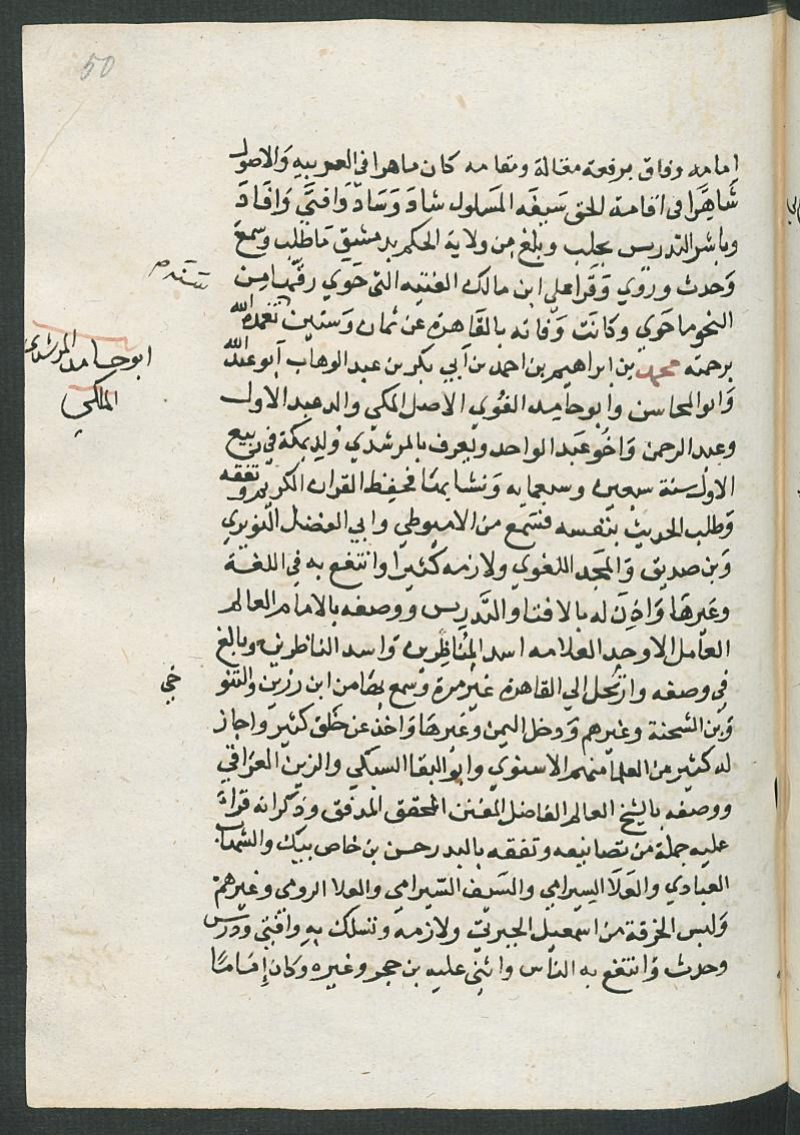 50
امامه وفاق برفعة مقالة ومقامه كان ماهرا فى العربيه والاصول
شاهرا فى اقامة الحق سيفه المسلول شاد وساد وافتى وافاد
وباشر التدريس بحلب وبلغ من ولاية الحكم بدمشق ماطلب وسمع
وحدث وروي وقرا على ابن مالك الفتيه التى حوي رقمها من
ستقدم
النحو ما حوي وكانت وفاته بالقاهرة عن ثمان وستين تغمده الله
برحمته محمد بن ابراهيم بن احمد بن أبي بكر بن عبد الوهاب أبو عبد الله
ابو حامد المرشدي
المكي
وابو المحاسن وابو حامد الفوي الاصل المكي والد عبد الاول
وعبد الرحمن واخو عبد الواحد ويعرف بالمرشدي ولد بمكة في ربيع
الاول سنة سبعين وسبعمايه ونشا بها فحفظ القران الكريم وتفقه
وطلب الحديث بنفسه فسمع من الاميوطي وابي الفضل النويري
وبن صديق والمجد اللغوي ولازمه كثيرا وانتفع به في اللغة
وغيرها واذن له بالافتا والتدريس ووصفه بالامام العالم
العامل الاوحد العلامه اسد المناظرين واسد الناظرين وبالغ
في وصفه وارتحل الي القاهرة غير مرة وسمع بها من ابن رزين والتنو
خي
وبن الشحنة وغيرهم ودخل اليمن وغيرها واخذ عن خلق كثير واجاز
له كثير من العلما منهم الاسنوي وابو البقا السبكي والزين العراقي
ووصفه بالشيخ العالم الفاضل المفنن المحقق المدقق وذكر انه قراة
عليه جملة من تصانيفه وتفقه بالبدر حسن بن خاص بيك والشهاب
العبادي والعلا السيرامي والسيف السيرامي والعلا الرومي وغيرهم
ولبس الخرقة من اسمعيل الجبرتي ولازمه وتسلك به وافتى ودرس
وحدث وانتفع به الناس واثنى عليه بن حجر وغيره وكان إماما